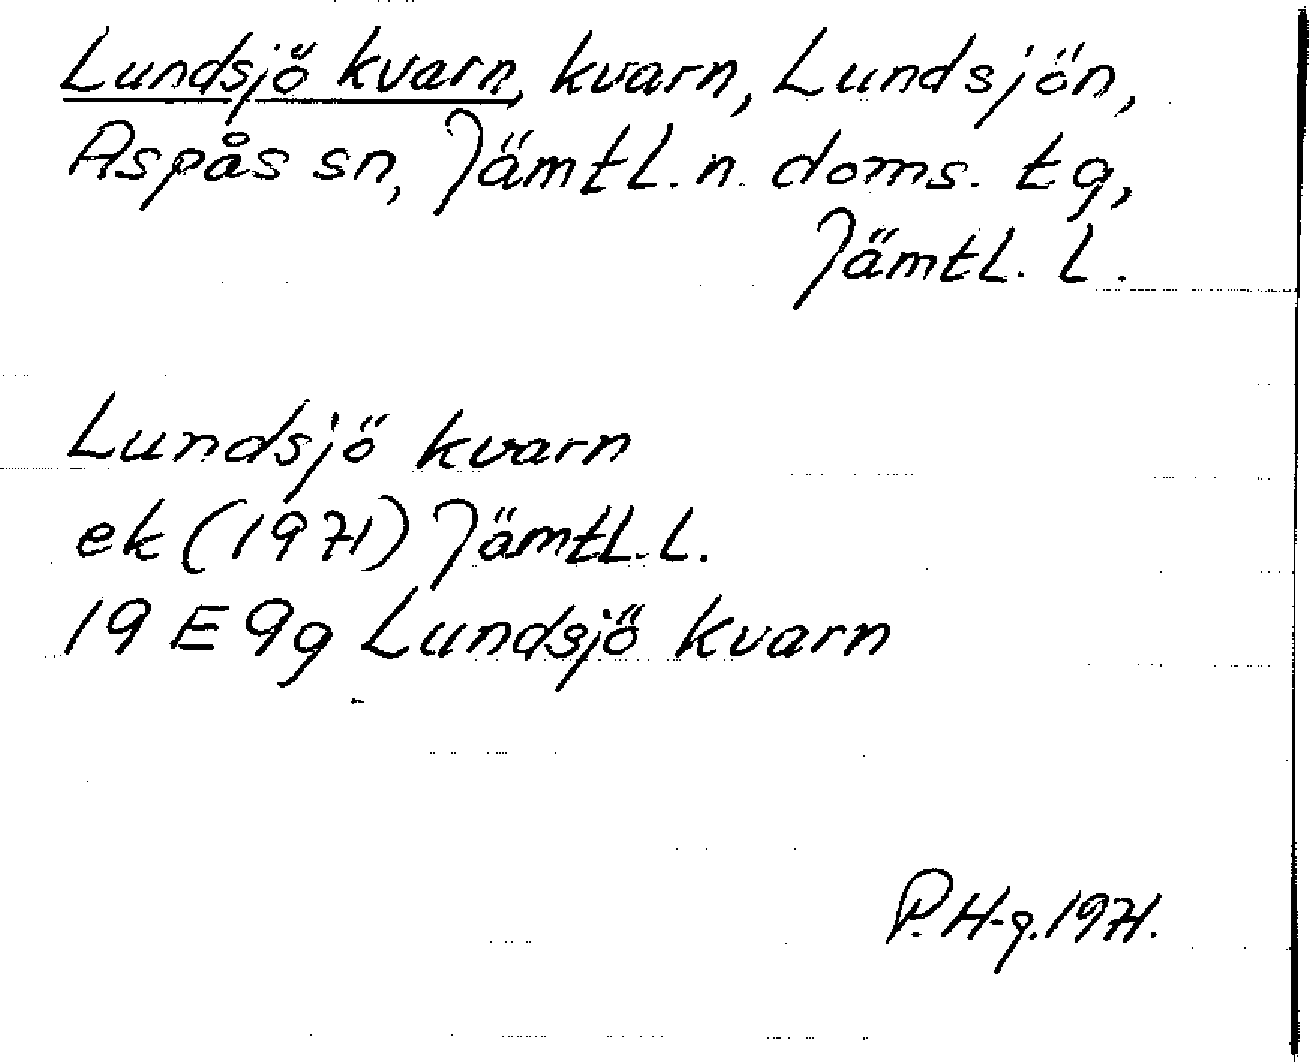 Lundsjö kvarn, kvarn, Lundsjön,
Aspås sn, Jämtl. n. doms. tg,
Jämtl. l.
Lundsjö kvarn
ek (1971) Jämtl. l.
19 E 9g Lundsjö kvarn
P. H-g. 1971.